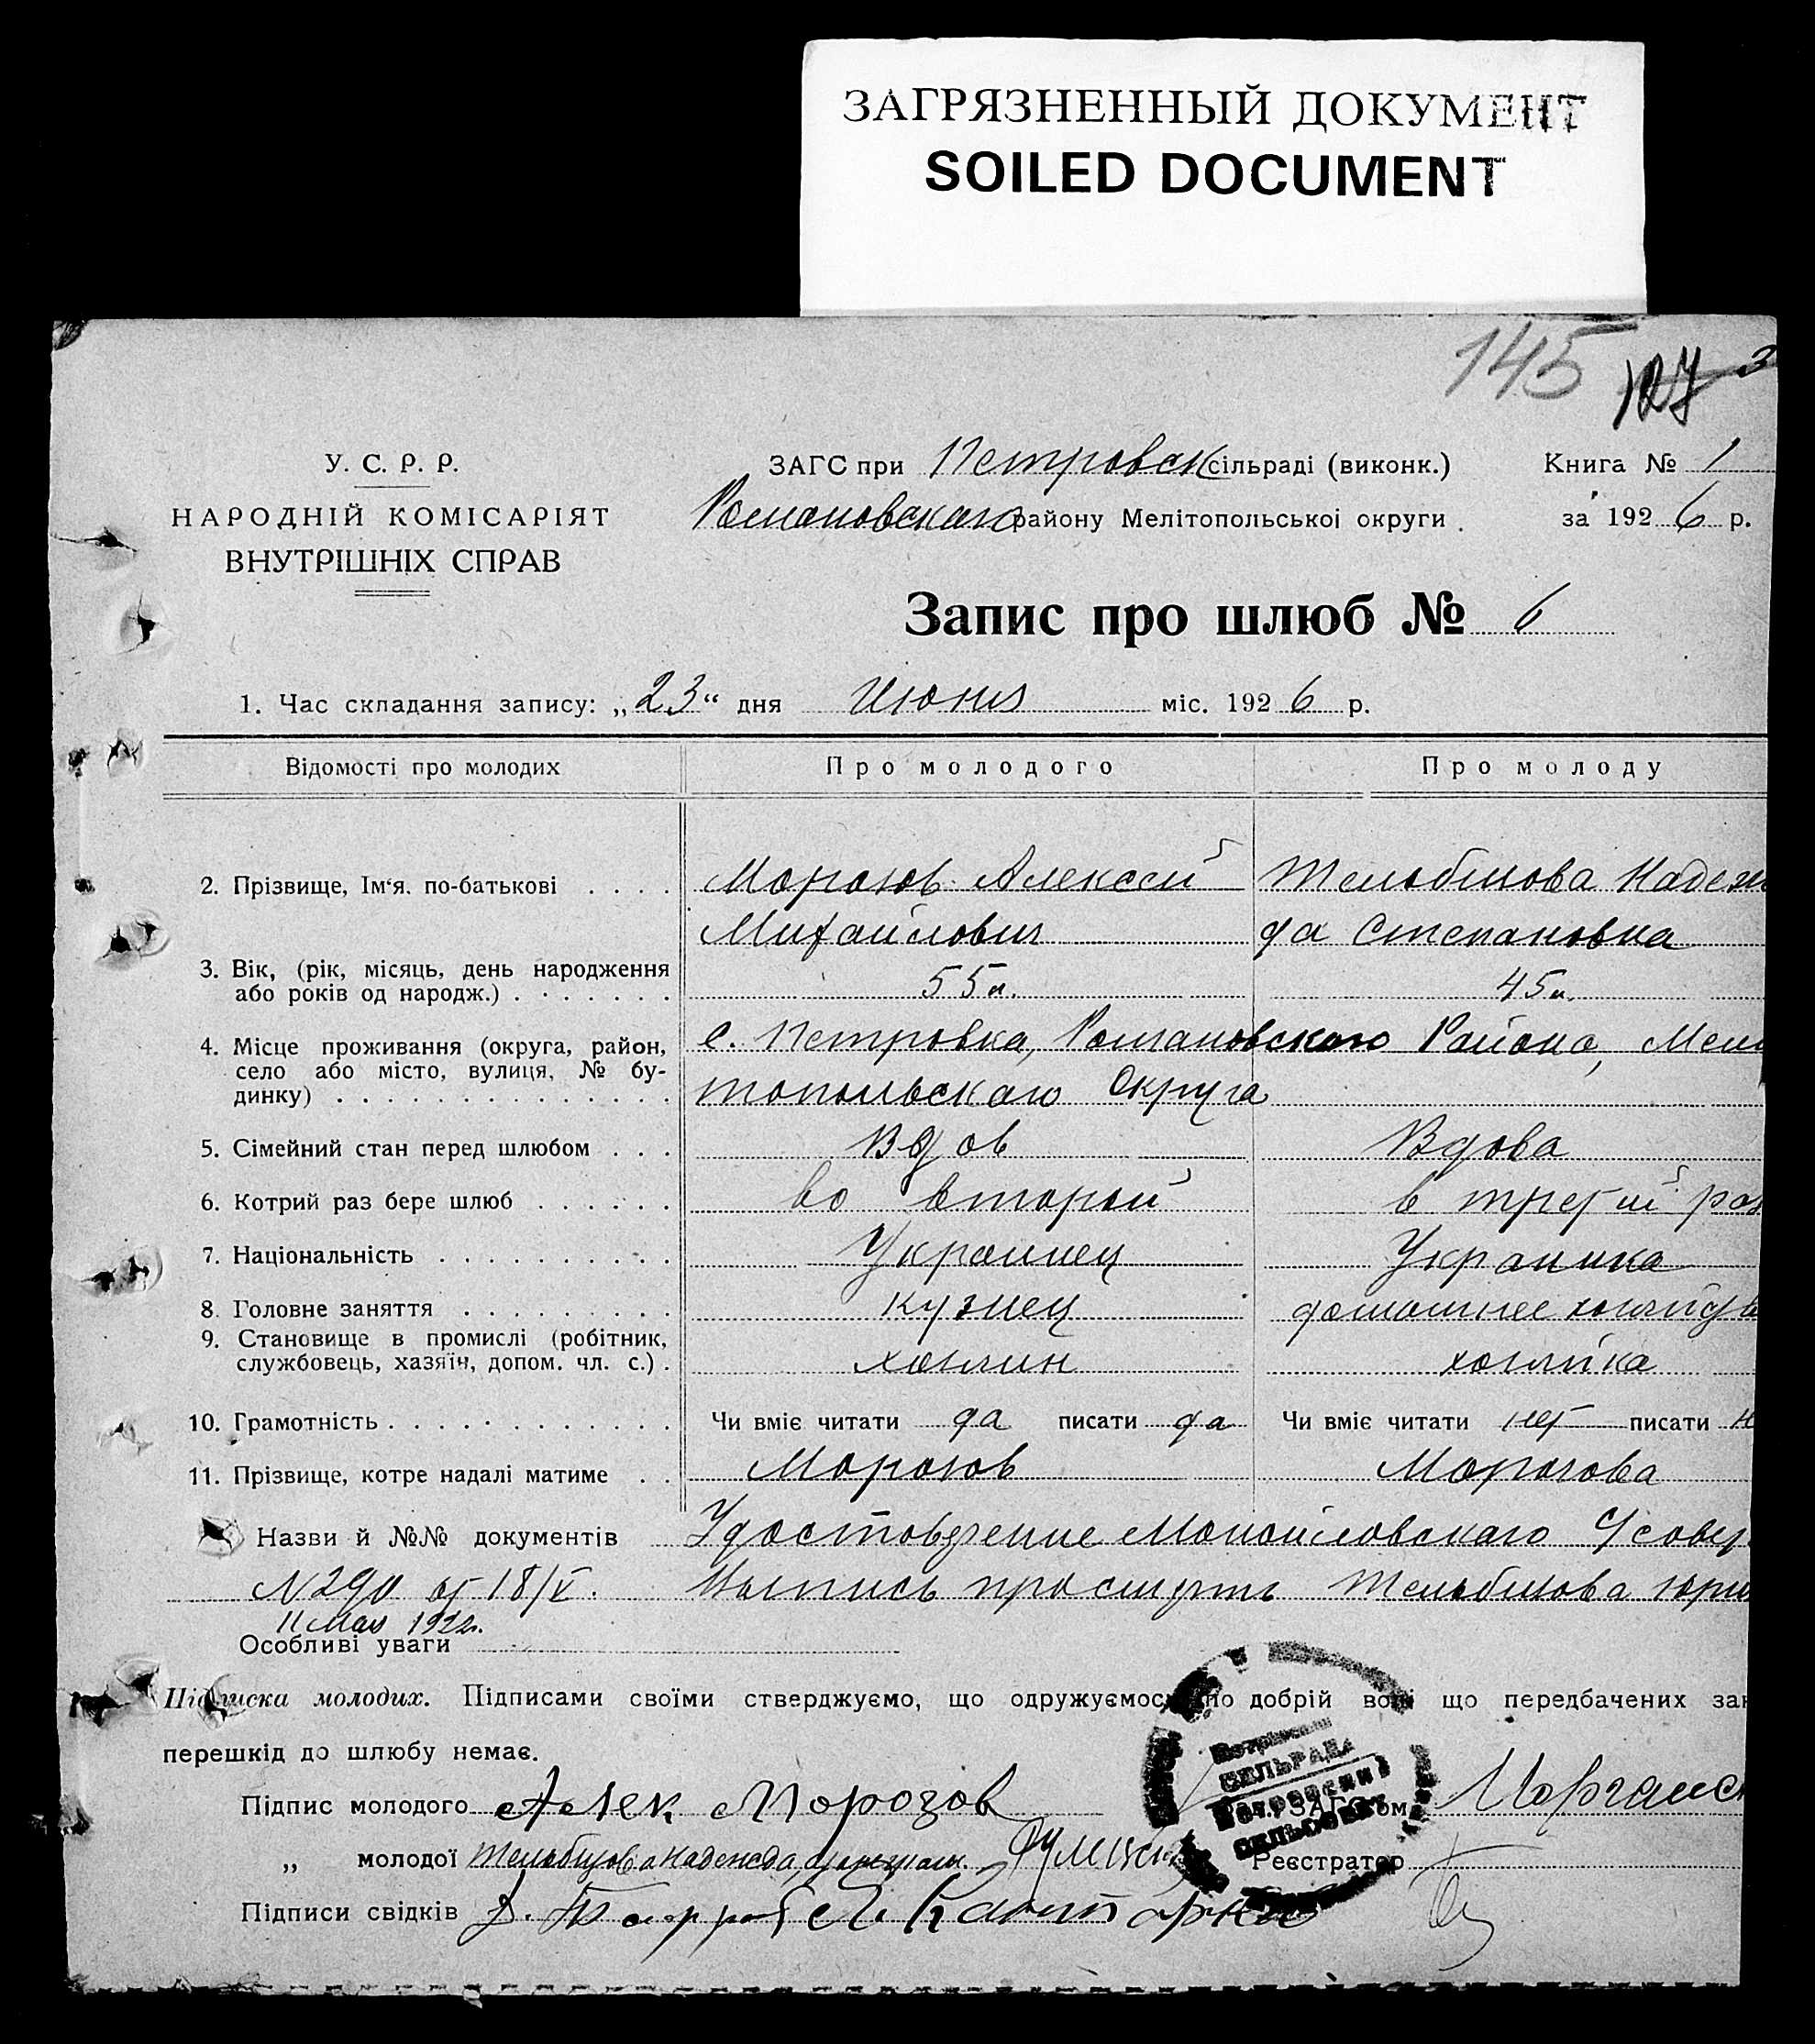 ЗАГРЯЗНЕННЫЙ ДОКУМЕНТ
SOILED DOCUMENT
145 127 3
У. С. Р. Р.
НАРОДНІЙ КОМІСАРІЯТ
ВНУТРІШНІХ СПРАВ
ЗАГС при Петровск сільраді (виконк.) Книга № 1
Романовскаго району Мелітопольської округи. за 1926 р.
Запис про шлюб № 6
1. Час складання запису: „23“ дня Июня міс. 1926 р.
Відомості про молодих Про молодого Про молоду
2. Прізвище, Ім‘я, по-батькові . . . . Морозов Алексей Надеж
Михайлович да Степановна
3. Вік, (рік, місяць, день народження
або років од народж.) . . . . . . . 55 л. 45 л.
4. Місце проживання (округа, район, с. Петровка, Романовскаго Района, Мели
село або місто, вулиця, № бу-
динку) . . . . . . . . . . . . . . топольскаго Округа
5. Сімейний стан перед шлюбом . . . Вдов Вдова
6. Котрий раз бере шлюб . . . . . . во второй в третий раз
7. Національність . . . . . . . . . . Украинец Украинка
8. Головне заняття . . . . . . . . . кузнец домашнее
9. Становище в промислі (робітник,
службовець, хазяїн, допом. чл. с.) . хозяин хозяйка
10. Грамотність . . . . . . . . . . . . Чи вміє читати да писати да Чи вміє читати нет писати н
11. Прізвище, котре надалі матиме . . Морозов Морозова
Назви й №№ документів Удостоверение
N 290 от 18/V. Выпись
11 Мая 1922г.
Особливі уваги
Підписка молодих. Підписами своїми стверджуємо, що одружуємось по добрій волі що передбачених зак
перешкід до шлюбу немає.
Підпис молодого Алек Морозов ЗАГС‘ом
СЕЛЬРАДА
„ молодої Надежда Реєстратор
Підписи свідків